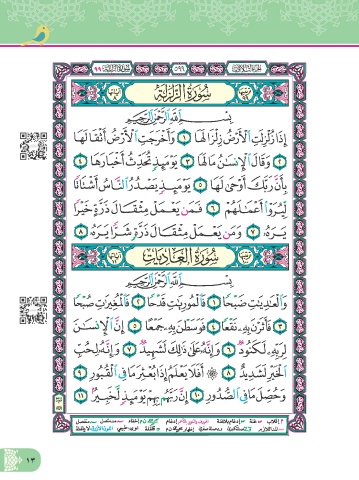 الجزء الثلاثون ٥٩٩ سورة الزلزلة ٩٩
سُورَةُ الزَّلْزَلَةِ
بِسْمِ ٱللَّهِ ٱلرَّحْمَٰنِ ٱلرَّحِيمِ
إِذَا زُلْزِلَتِ ٱلْأَرْضُ زِلْزَالَهَا ١ وَأَخْرَجَتِ ٱلْأَرْضُ أَثْقَالَهَا
٢ وَقَالَ ٱلْإِنسَٰنُ مَا لَهَا ٣ يَوْمَئِذٍ تُحَدِّثُ أَخْبَارَهَا ٤
بِأَنَّ رَبَّكَ أَوْحَىٰ لَهَا ٥ يَوْمَئِذٍ يَصْدُرُ ٱلنَّاسُ أَشْتَاتًا
لِّيُرَوْا۟ أَعْمَٰلَهُمْ ٦ فَمَن يَعْمَلْ مِثْقَالَ ذَرَّةٍ خَيْرًا
يَرَهُۥ ٧ وَمَن يَعْمَلْ مِثْقَالَ ذَرَّةٍ شَرًّا يَرَهُۥ ٨
سُورَةُ العَادِيَاتِ
بِسْمِ ٱللَّهِ ٱلرَّحْمَٰنِ ٱلرَّحِيمِ
وَٱلْعَٰدِيَٰتِ ضَبْحًا ١ فَٱلْمُورِيَٰتِ قَدْحًا ٢ فَٱلْمُغِيرَٰتِ صُبْحًا
٣ فَأَثَرْنَ بِهِۦ نَقْعًا ٤ فَوَسَطْنَ بِهِۦ جَمْعًا ٥ إِنَّ ٱلْإِنسَٰنَ
لِرَبِّهِۦ لَكَنُودٌ ٦ وَإِنَّهُۥ عَلَىٰ ذَٰلِكَ لَشَهِيدٌ ٧ وَإِنَّهُۥ لِحُبِّ
ٱلْخَيْرِ لَشَدِيدٌ ٨ ۞ أَفَلَا يَعْلَمُ إِذَا بُعْثِرَ مَا فِى ٱلْقُبُورِ ٩
وَحُصِّلَ مَا فِى ٱلصُّدُورِ ١٠ إِنَّ رَبَّهُم بِهِمْ يَوْمَئِذٍ لَّخَبِيرٌ ١١
١٣